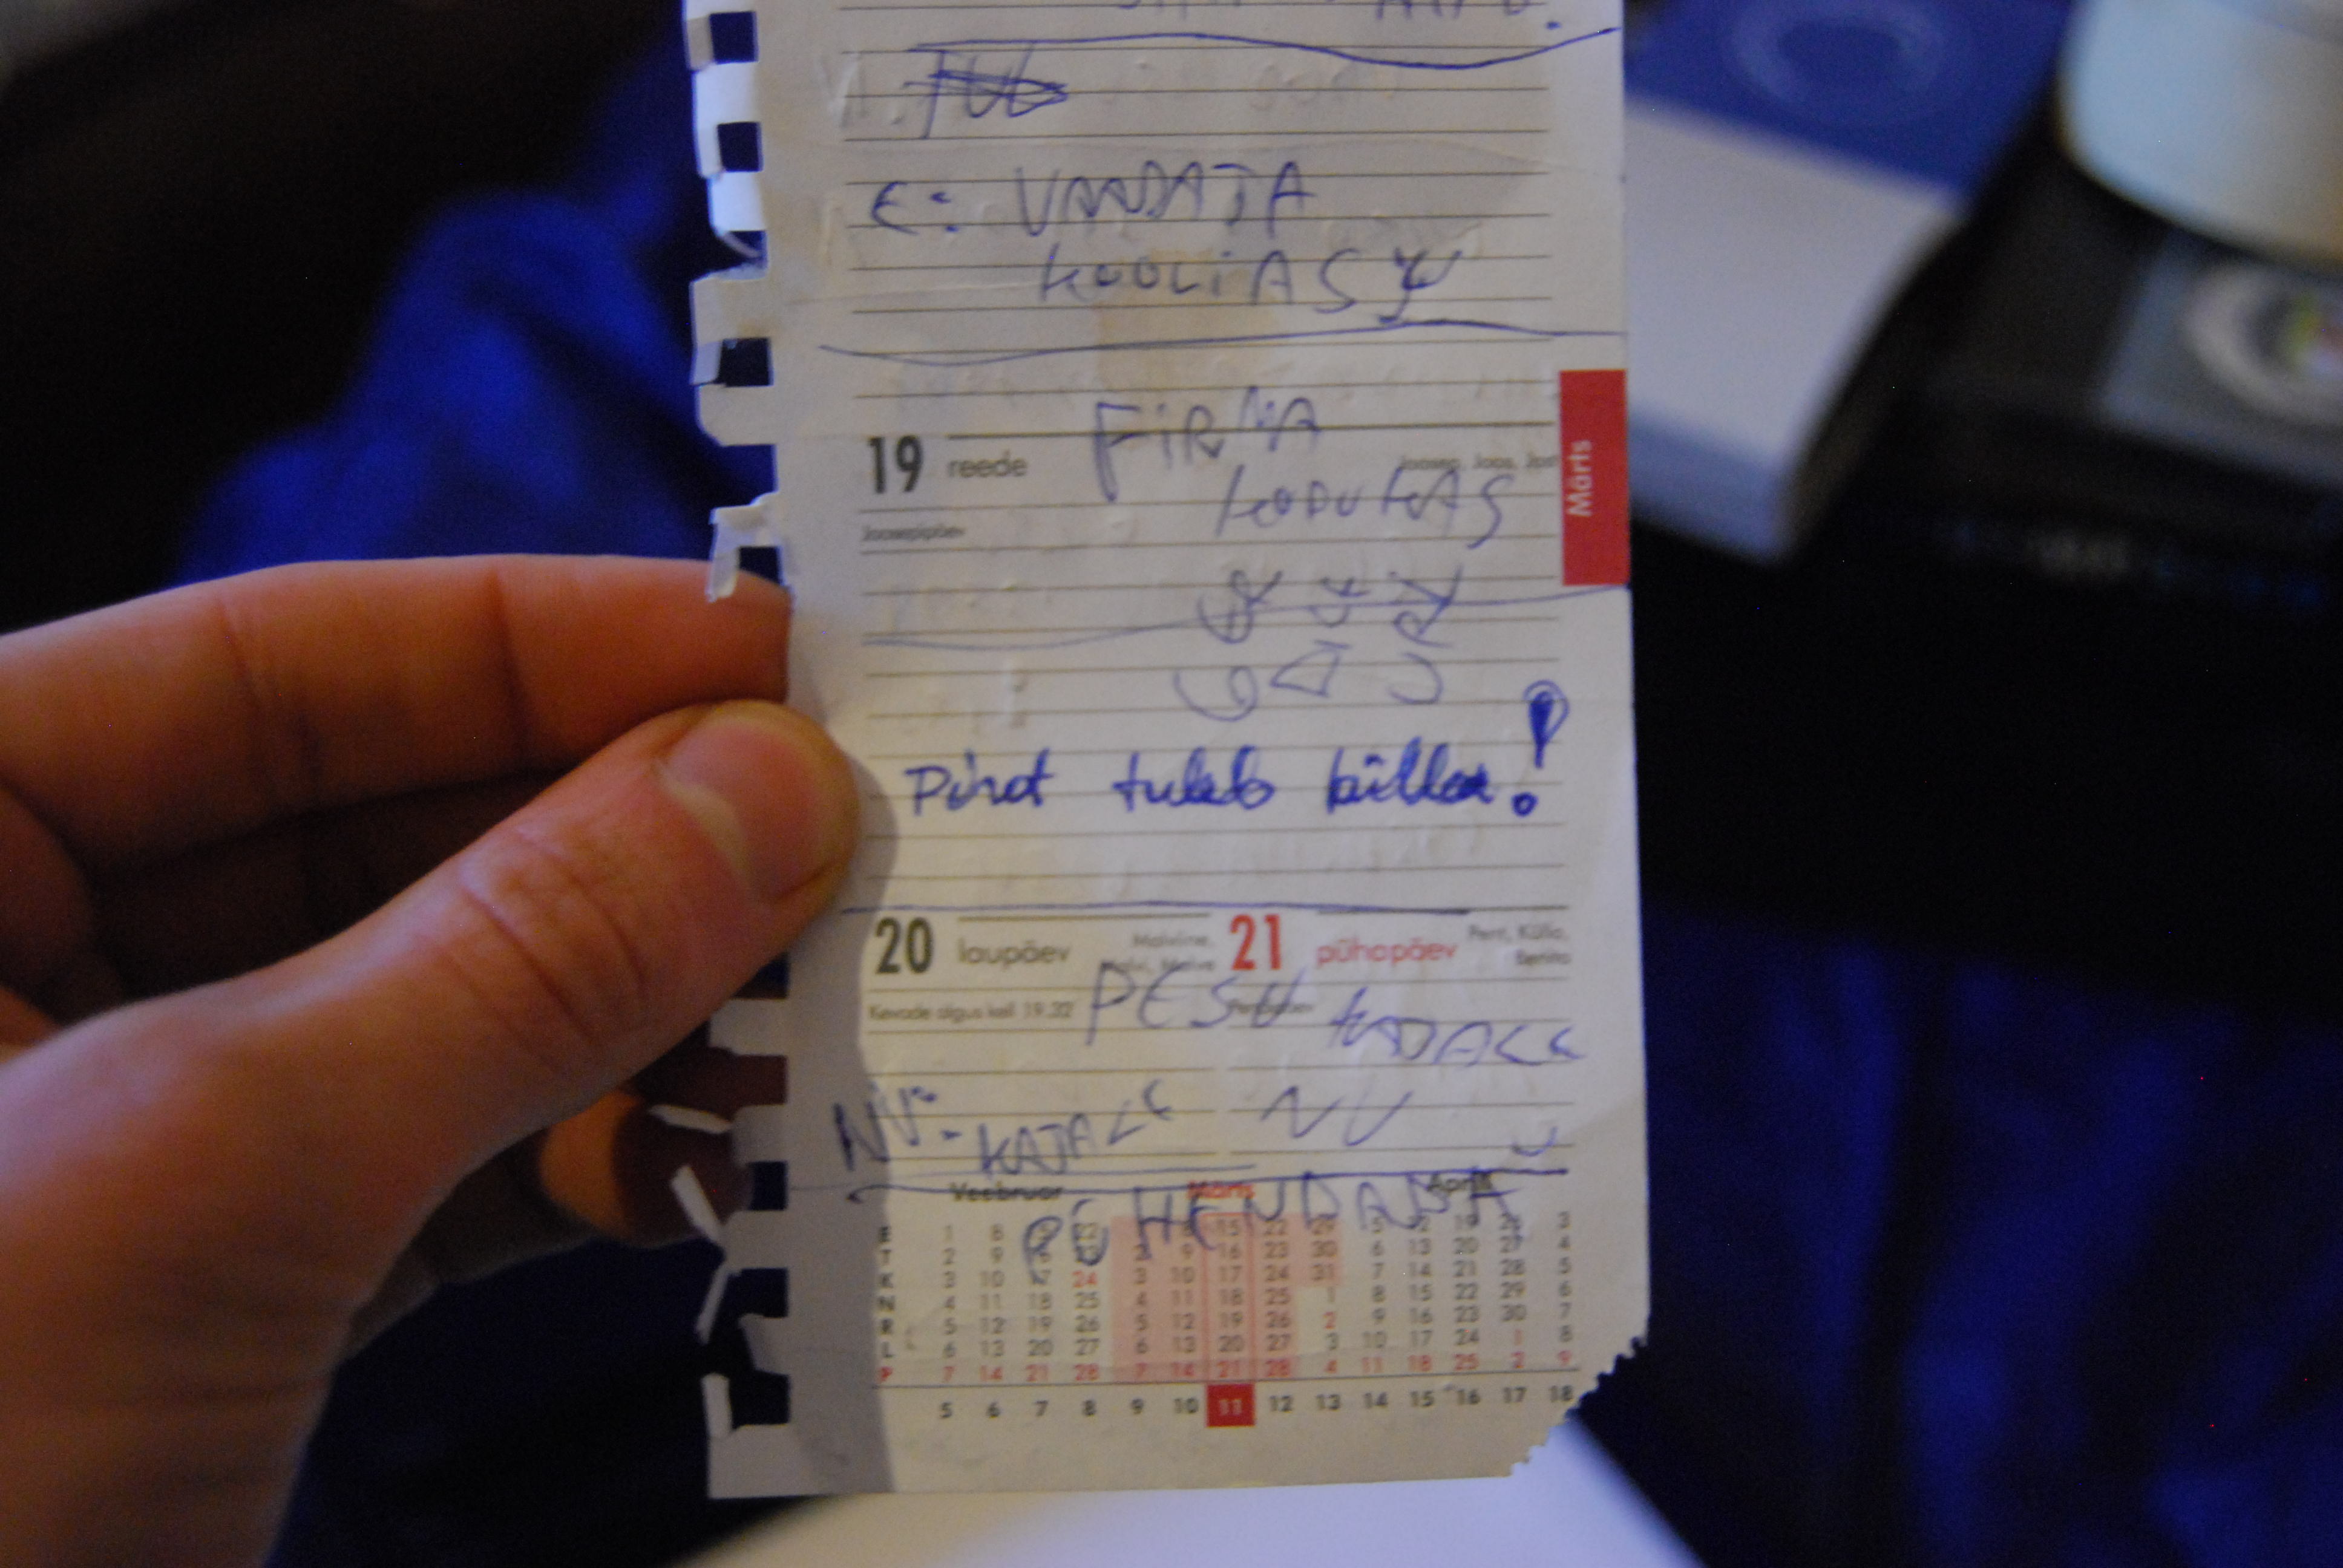 E: VAADATA
KOOLIASJU
FIRMA
19 reede Joosep, Joos,
KODUKAS
Joosepipäev
Märts
Pirot tuleb külla!
20 laupäev Malviine, 21 pühapäev Pent, Küllo,
Malvi, Malve Benito
Kevade algus kell 19.32
PESU KADAKK
NV: KAJAKK NV
Veebruar Märts Aprill
PÜHENDADA
E 1 8 15 22 1 8 15 22 29 5 12 19 26 3
T 2 9 16 23 2 9 16 23 30 6 13 20 27 4
K 3 10 17 24 3 10 17 24 31 7 14 21 28 5
N 4 11 18 25 4 11 18 25 1 8 15 22 29 6
R 5 12 19 26 5 12 19 26 2 9 16 23 30 7
L 6 13 20 27 6 13 20 27 3 10 17 24 1 8
P 7 14 21 28 7 14 21 28 4 11 18 25 2 9
5 6 7 8 9 10 11 12 13 14 15 16 17 18